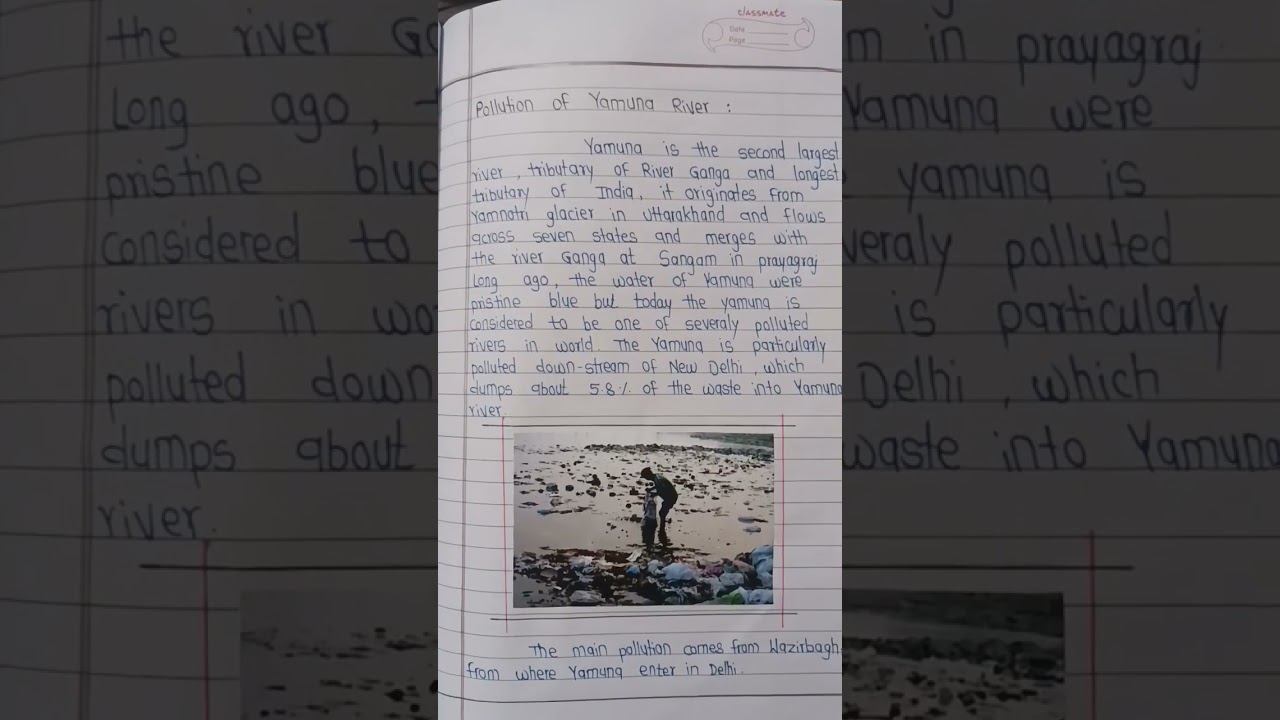 classmate
Date
Page
Pollution of Yamuna River :
Yamuna is the second largest
river, tributary of River Ganga and longest
tributary of India, it originates from
Yamnotri glacier in Uttarakhand and flows
across seven states and merges with
the river Ganga at Sangam in prayagraj
Long ago, the water of Yamuna were
pristine blue but today the yamuna is
considered to be one of severaly polluted
rivers in world. The Yamuna is particularly
polluted down-stream of New Delhi, which
dumps about 58% of the waste into Yamuna
river.
The main pollution comes from Wazirbagh
from where Yamuna enter in Delhi.